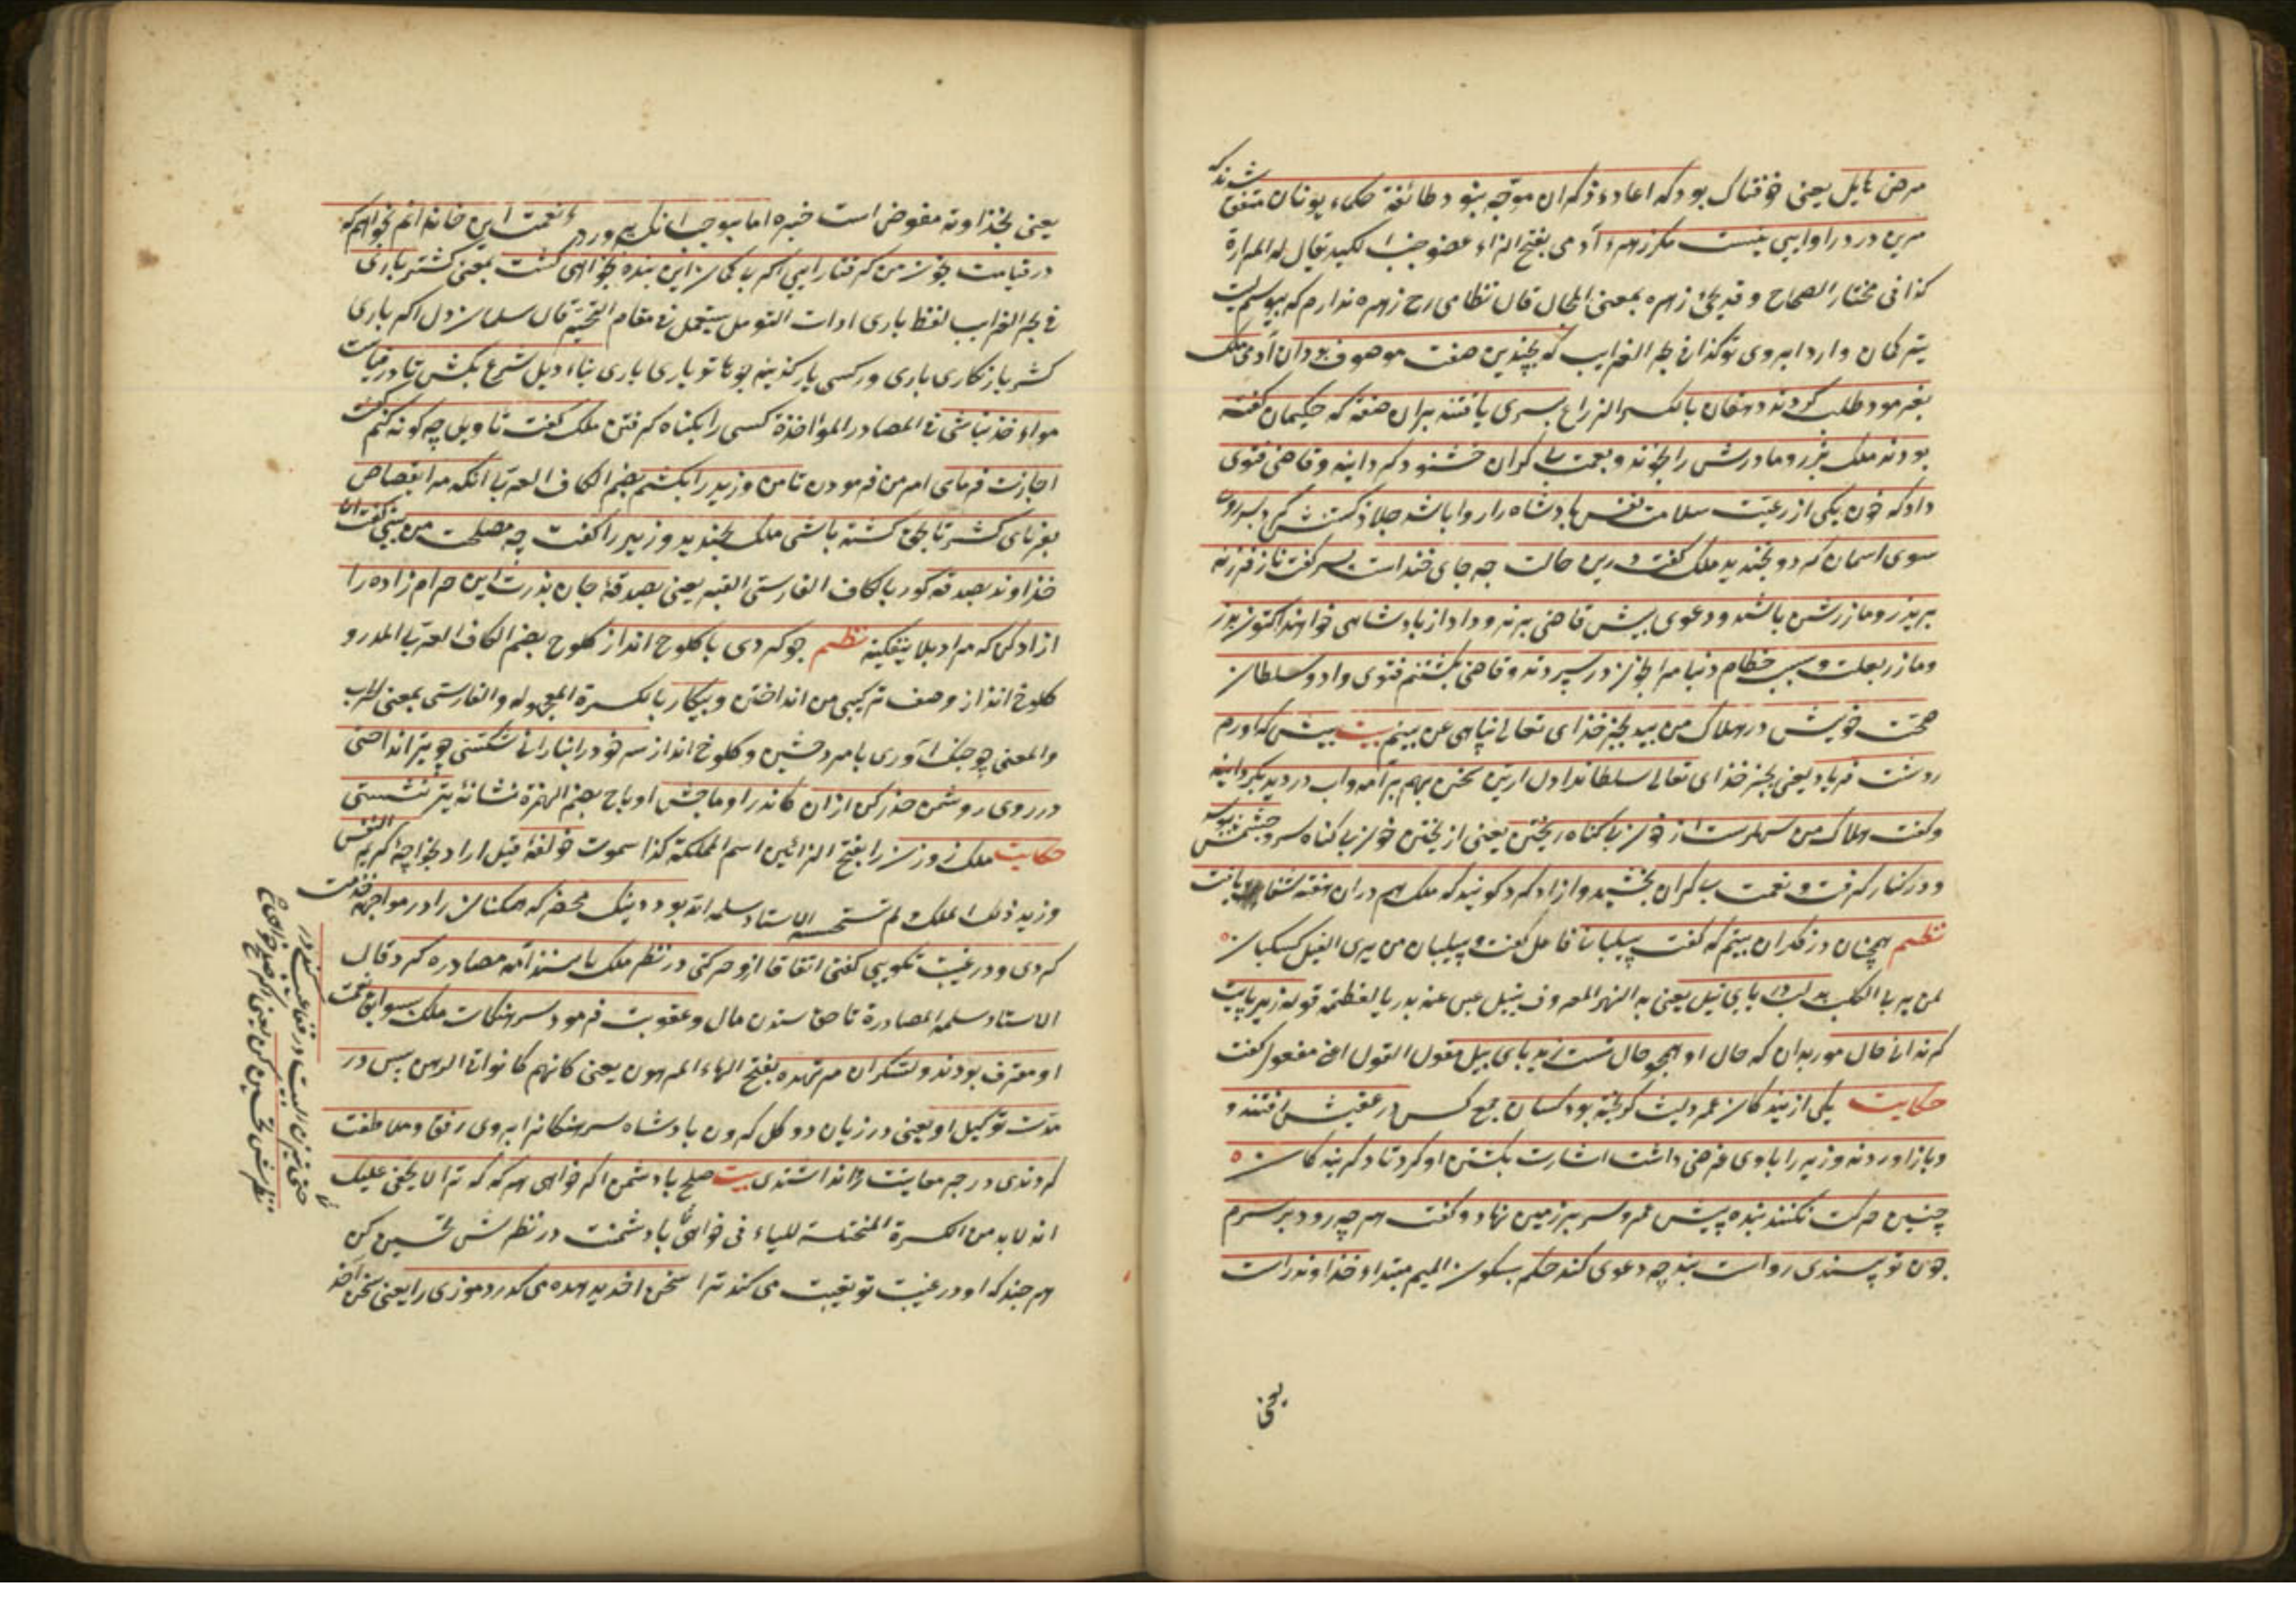 مرض هایل یعنی خوفناک بود که اعادۀ ذکر آن موجه نبود طائفۀ حکماء یونان متفق شدند که
مرین درد را دوایی نیست مگر زهرۀ آدمی بفتح الزاء عضو جنب الکبد یقال له المرارة
کذا فی مختار الصحاح و قد یجئ زهره بمعنی المجال قال نظامی رح زهره ندارم که ببوسم لبت
تیر کمان دارد ابروی تو کذا فی بحر الغرایب که بچندین صفت موصوف بود آن آدمی ملک
بفرمود طلب کردند دهقان بالکسر الزراع پسری یافتند بران صفة که حکیمان گفته
بودند ملک پدر و مادرش را بخواند و بنعمت بی کران خشنود گردانید و قاضی فتوی
داد که خون یکی از رعیت سلامت نفس پادشاه را روا باشد جلاد کشتنش کرد پسر روی
سوی اسمان کرد و بخندید ملک گفت درین حالت چه جای خنداست پسر گفت ناز فرزند
بر پدر و مادرش باشد و دعوی پیش قاضی برند و داد از پادشاهی خواهند اکنون پدر
و مادر بعلت و سبب حطام دنیا مرا بخون در سپردند و قاضی بکشتنم فتوی داد و سلطان
صحت خویش در هلاک من بیند بجز خدای تعالی پناهی نمی بینم بیت پیش که اورم
ز دستت فریاد یعنی بجز خدای تعالی سلطانرا دل ازین سخن بهم برآمد و اب در دیده بگردانید
و گفت هلاک من بهترست از خون بی گناه ریختن یعنی از ریختن خون بی گناه سر و چشمش ببوسید
و در کنار گرفت و نعمت بی کران بخشید و ازاد کرد گویند که ملک هم دران هفته شفا یافت
نظم همچنان در فکر آن بیتم که گفت پیلبانی فاعل گفت و پیلبان من یری الفیل کسکبان
لمن یربی الکلب بر لب دریای نیل یعنی به النهر المعروف بنیل عبر عنه بدریا لعظمته قوله زیر پایت
گر ندانی حال مور بدان که حال او همچو حال تست زیر پای پیل مقول القول اعنی مفعول گفت
حکایت یکی از بندکان عمرو لیث گریخته بود کسان جمع کس در عقبش رفتند و
و باز اوردند وزیر را با وی غرضی داشت اشارت بکشتن او کرد تا دگر بندکان
چنین حرکت نکنند بنده پیش عمرو سر بر زمین نهاد و گفت هر چه رود بر سرم
چون تو پسندی رواست بنده چه دعوی کند حکم بسکون المیم مبتداء خداوند راست
یعنی
یعنی بخداوند مفوض است خبره اما بموجب انکه پروردۀ نعمت این خاندانم نخواهم که
در قیامت بخون من گرفتار آیی اگر بی گمان این بنده بخواهی کشت بمعنی کشتن باری
فی بحر الغرایب لفظ باری ادات التوسل یستعمل فی مقام التحتیه قال سلمان دل اگر باری
کشد باز نگاری باری ور کسی یار گزیند چو تو یاری باری بتاویل شرع بکش تا در قیامت
مواخذ نباشی فی المصادر المؤاخذة کسی را بگناه گرفتن ملک گفت تاویل چه گونه کنم گفت
اجازت فرمای امر من فرمودن تا من وزیر را بکشم بضم الکاف العربی انگه مرا بقصاص
بفرمای کشتن تا بحق کشته باشی ملک بخندید وزیر را گفت چه مصلحت می بینی گفت ای
خداوند بصدقۀ گور بالکاف الفارسی القبر یعنی بصدقۀ جان پدرت این حرام زاده را
ازاد کن که مرا در بلا نیفکند نظم چو کردی با کلوخ انداز کلوخ بضم الکاف العربی المدر و
کلوخ انداز وصف ترکیبی من انداختن و پیکار بالکسرة المجهوله والفارسی بمعنی الحرب
والمعنی چو جنک آوری با مردمشین و کلوخ انداز سر خود را بنادانی شکستی چو تیر انداختی
در روی دشمن حذر کن ازان کاندر اوماجش اوماج بضم الهمزة نشانۀ تیر نشستی
حکایت ملک زوزن را بفتح الزائین اسم المملکة کذا سموت خواجۀ کریم النفس
وزیر ذلک الملک لم تستحسنه الاستاد سلمه الله بود و نیک محضر که همکنان را در مواجهه خدمت
کردی و در غیبت نکویی گفتی اتفاقا ازو حرکتی در نظر ملک ناپسند آمد مصادره کرد قال
الاستاد سلمه المصادرة تا حق ستدن مال و عقوبت فرمود سرهنکان ملک بسوابق نعمت
او معترف بودند و بشکر ان مرتهن بفتح الهاء المرهون یعنی کانهم کانوا فی الرهن پس در
مدت توکیل او یعنی در زیان دو کل کردن پادشاه سرهنکانرا بروی رفق و ملاطفت
کردندی و زجر و معاتبت روا نداشتندی بیت صلح با دشمن اگر خواهی هر گه که ترا لا یخفی علیک
انه لا بد من الکسرة المختلسة للیاء فی خواهی با دشمنت در نظرش تحسین کن
هر چند که او در غیبت تو غیبت می کند ترا سخن اخر بدهان می گذرد موذی را یعنی سخن آخر